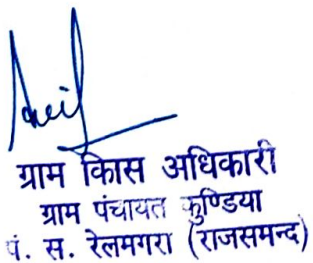 ग्राम विकास अधिकारी
ग्राम पंचायत कुण्डिया
पं. स. रेलमगरा (राजसमन्द)